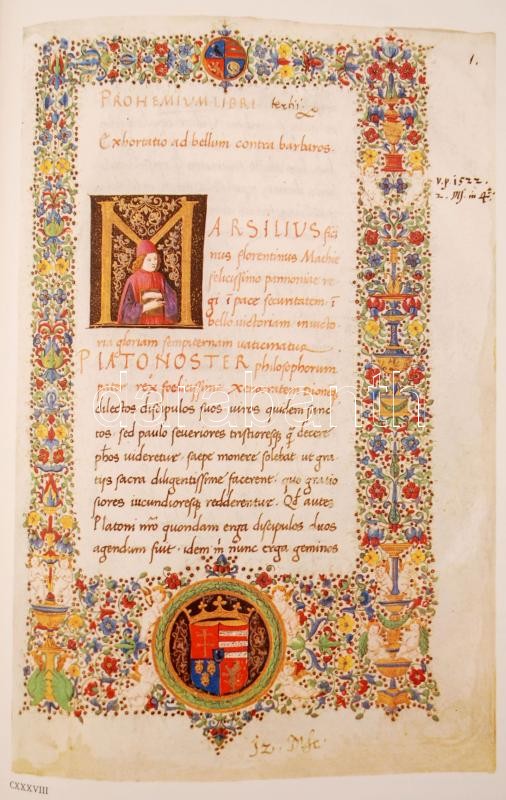 1.
PROHEMIUM LIBRI tertij
Exhortatio ad bellum contra barbaros.
v.p 1522.
2. Ms. in 4º
MARSILIUS fici
nus florentinus Mathie
felicissimo pannoniae re
gi ī pace securitatem ī
bello victoriam in victo
ria gloriam sempiternam vaticinatur
PLATO NOSTER philosophorum
pater rex foelicissime Xenocratem Dionēq
dilectos discipulos suos viros quidem sanc
tos sed paulo severiores tristioresq q̄ decere
phōs videretur saepe monere solebat ut gra
tijs sacra diligentissime facerent quo gratio
siores iucundioresq redderentur. Qd autē
Platoni nr̄o quondam erga discipulos duos
agendum fuit idem m̄ nunc erga geminos
darabanth
CXXXVIII